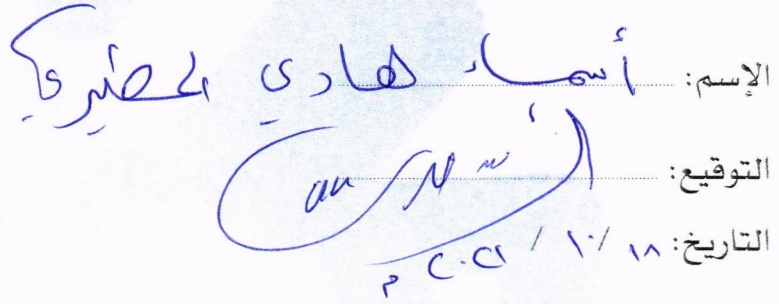 الإسم: أسماء هادي الحضيري
التوقيع:
التاريخ: ١٨ / ١٠ / ٢٠٢١ م